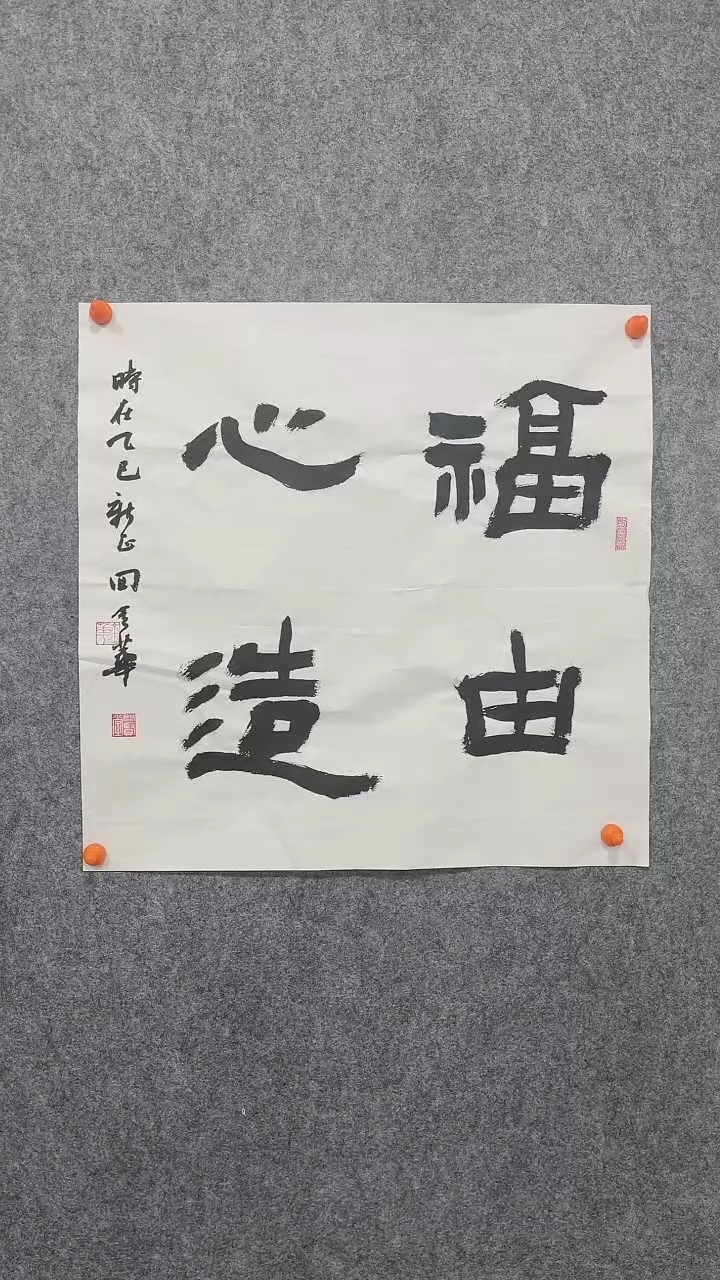 福由
心造
時在乙巳新正四月華